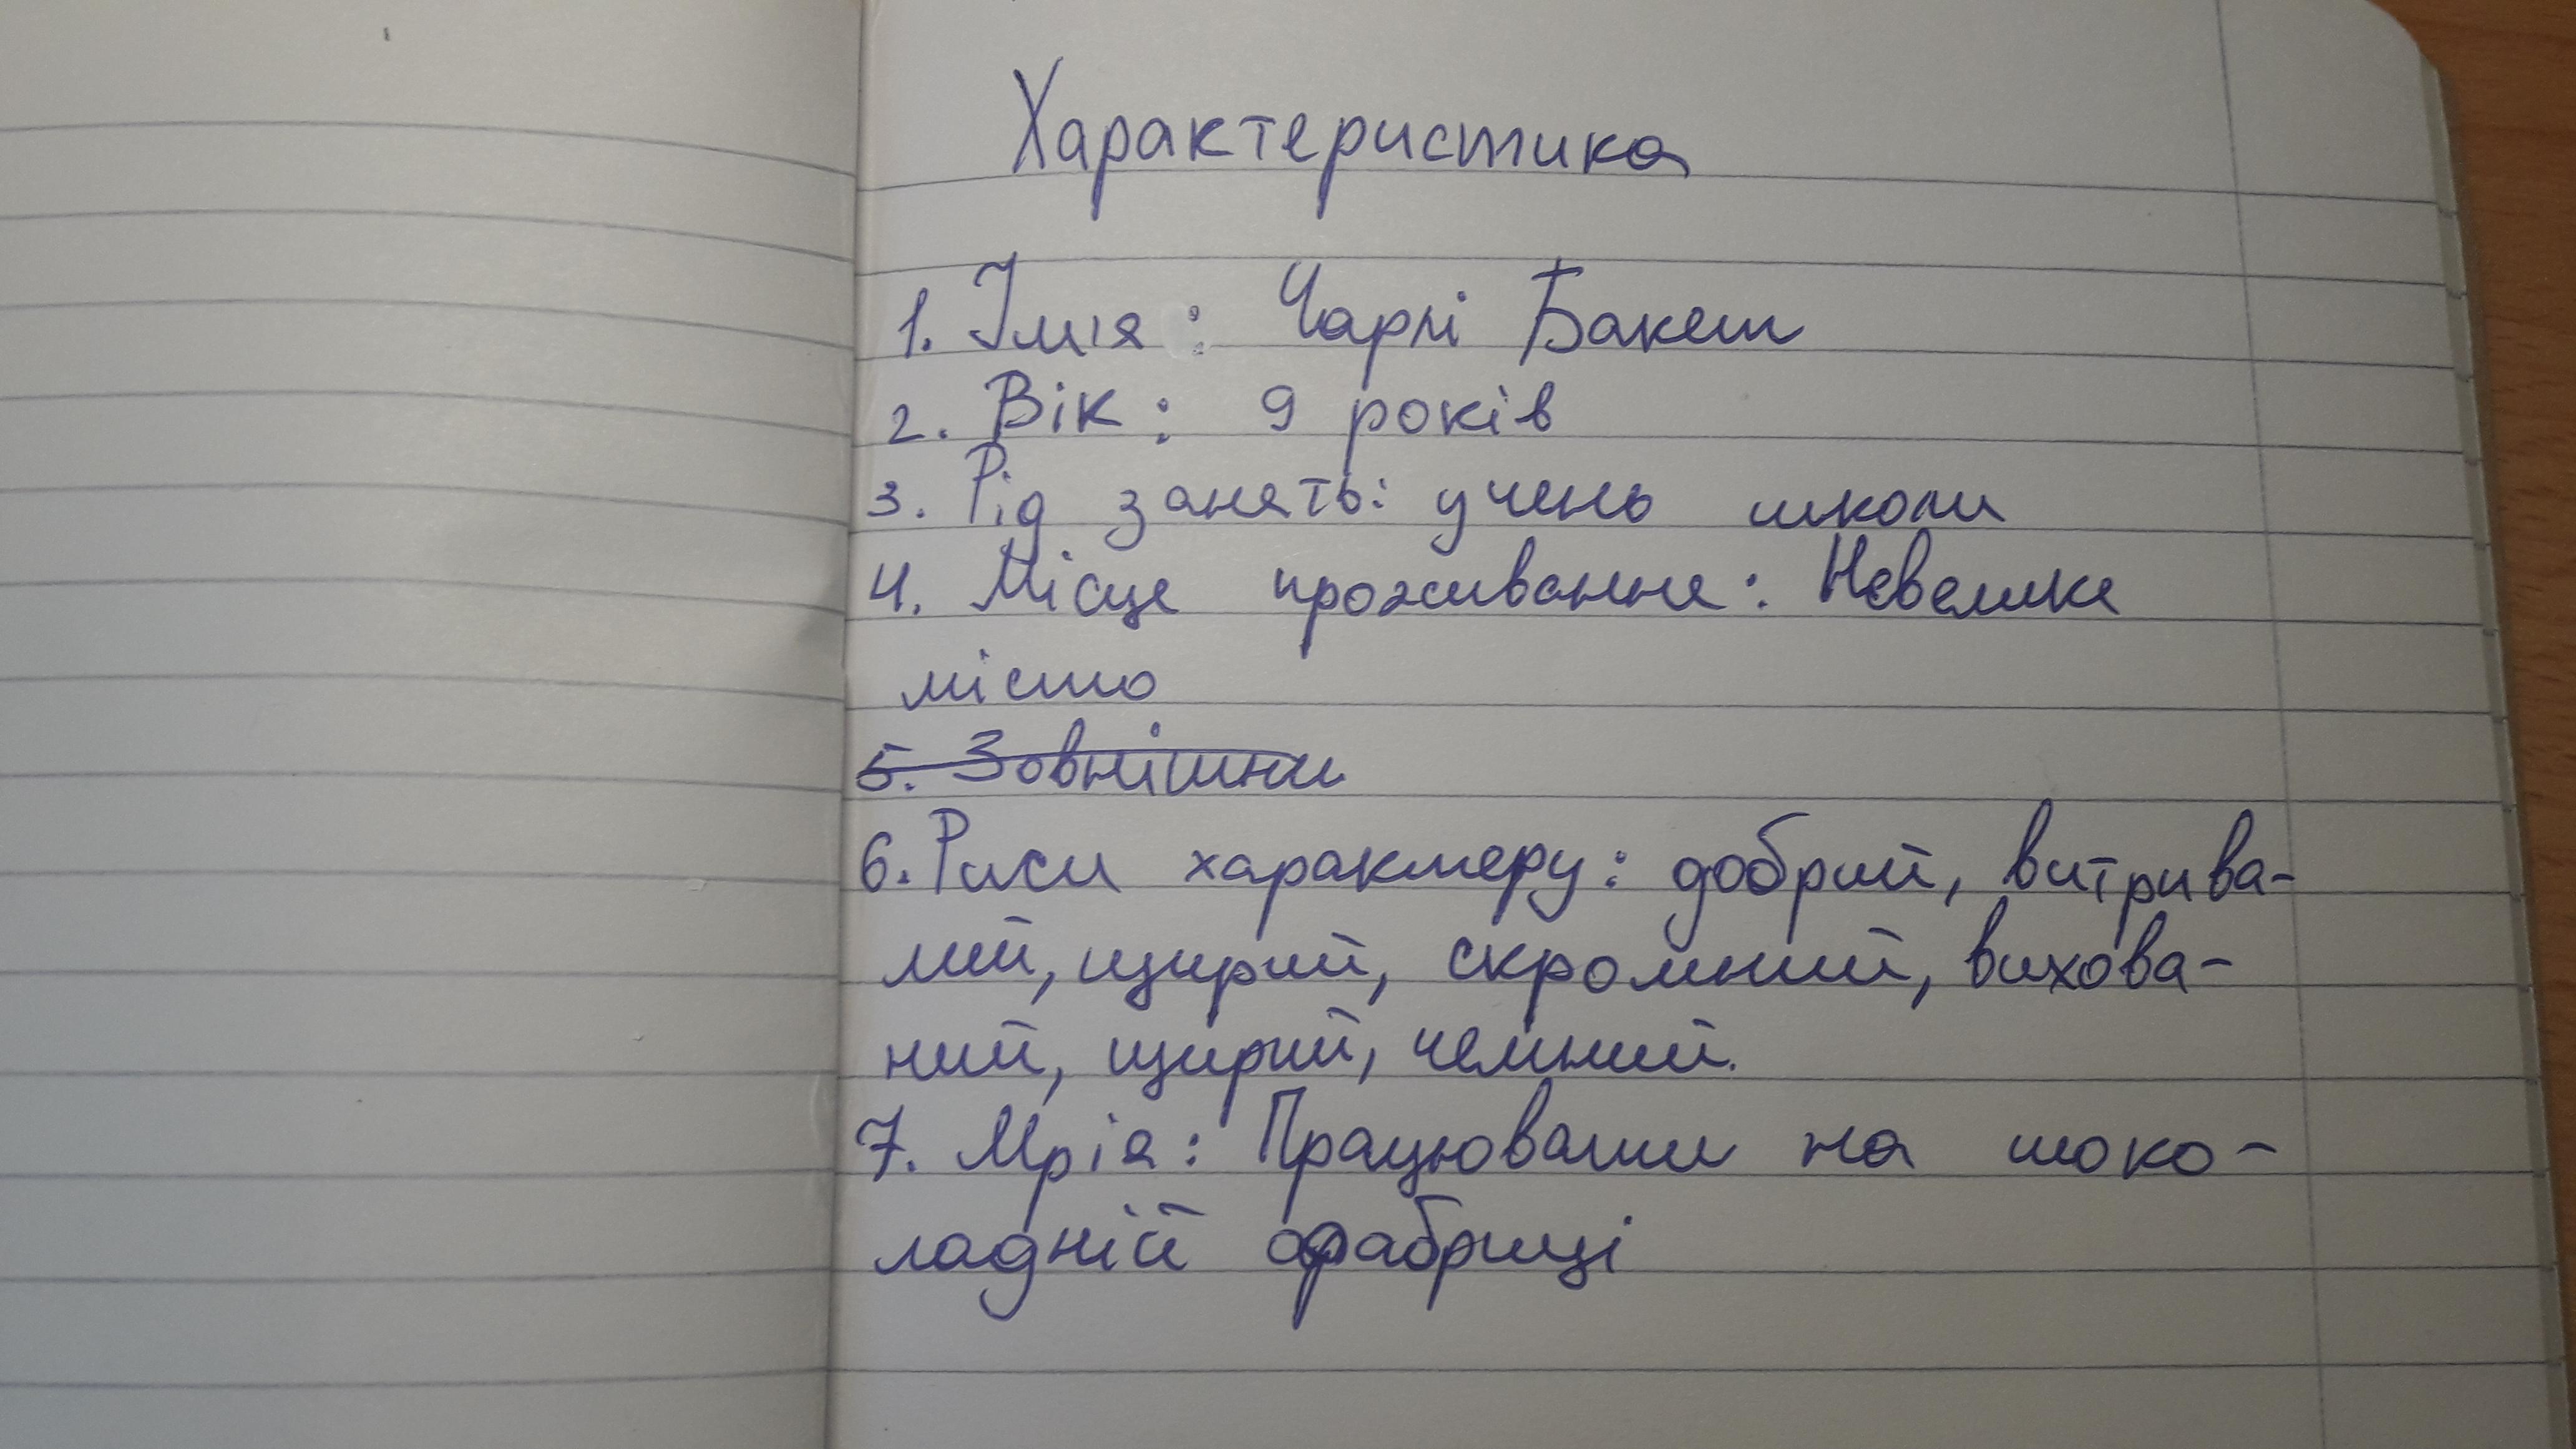 Характеристика
1. Ім'я: Чарлі Бакет
2. Вік: 9 років
3. Рід занять: учень школи
4. Місце проживання: Невелике
місто
5. Зовнішни
6. Риси характеру: добрий, витрива-
лий, щирий, скромний, вихова-
ний, щирий, чемний.
7. Мрія: Працювати на шоко-
ладній фабриці